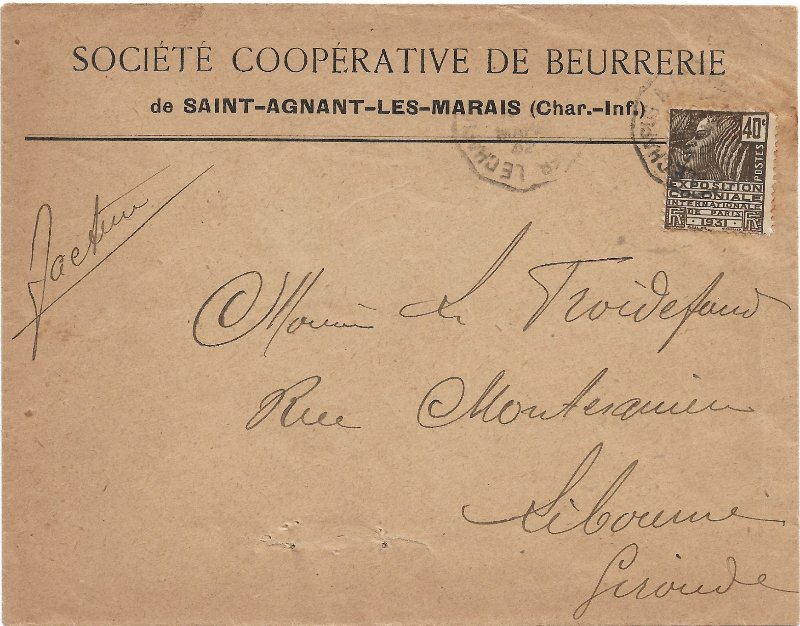 SOCIÉTÉ COOPÉRATIVE DE BEURRERIE
de SAINT-AGNANT-LES-MARAIS (Char.-Inf.)
40c
POSTES
EXPOSITION
COLONIALE
INTERNATIONALE
DE PARIS
1931
RF RF
Facture
Troidefond
Rue Montesquieu
Libourne
Gironde